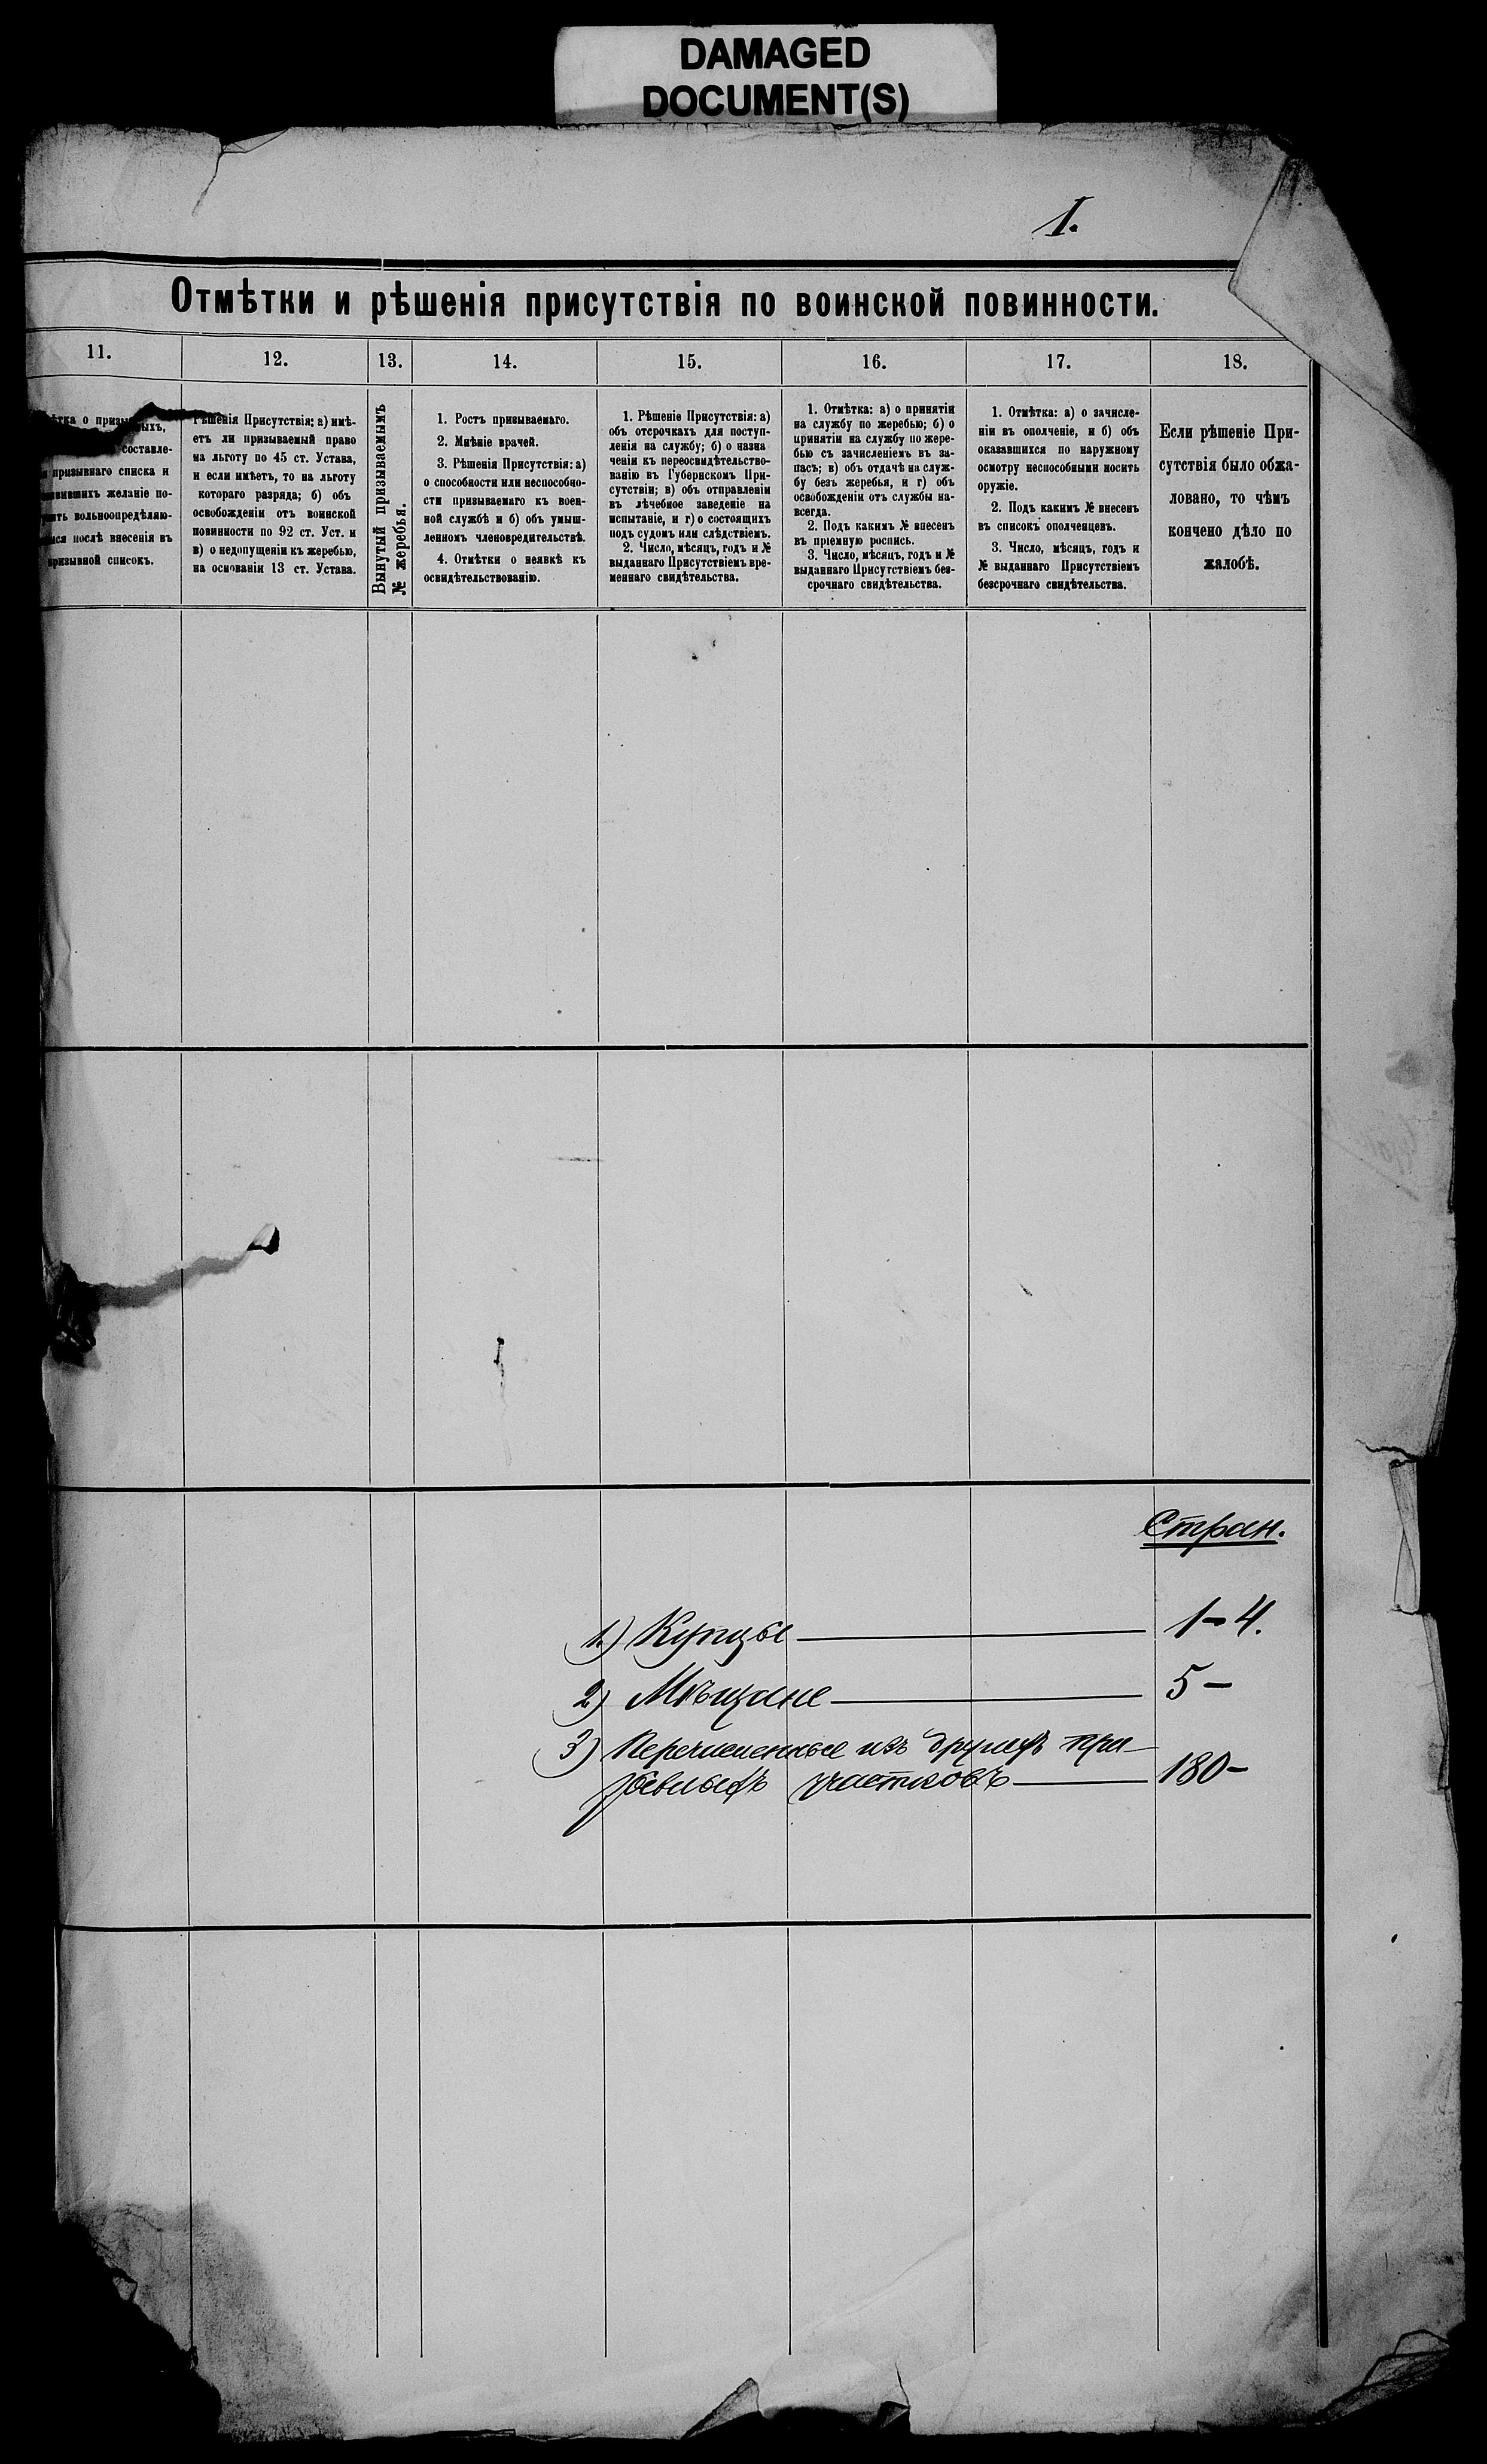 DAMAGED
DOCUMENT(S)
1.
Отмѣтки и рѣшенія присутствія по воинской повинности.
11.
12.
13.
14.
15.
16.
17.
18.
о
составле-
призывнаго списка и
желаніе по-
вольноопредѣляю-
послѣ внесенія въ
призывной списокъ.
Рѣшенія Присутствія: а) имѣ-
етъ ли призываемый право
на льготу по 45 ст. Устава,
и если имѣетъ, то на льготу
котораго разряда; б) объ
освобожденіи отъ воинской
повинности по 92 ст. Уст. и
в) о недопущеніи къ жеребью,
на основаніи 13 ст. Устава.
Вынутый призываемымъ
№ жеребья.
1. Ростъ призываемаго.
2. Мнѣніе врачей.
3. Рѣшенія Присутствія: а)
о способности или неспособно-
сти призываемаго къ воен-
ной службѣ и б) объ умыш-
ленномъ членовредительствѣ.
4. Отмѣтки о неявкѣ къ
освидѣтельствованію.
1. Рѣшеніе Присутствія: а)
объ отсрочкахъ для поступ-
ленія на службу; б) о назна
ченіи къ переосвидѣтельство-
ванію въ Губернскомъ При-
сутствіи; в) объ отправленіи
въ лѣчебное заведеніе на
испытаніе, и г) о состоящихъ
подъ судомъ или слѣдствіемъ.
2. Число, мѣсяцъ, годъ и №
выданнаго Присутствіемъ вре-
меннаго свидѣтельства.
1. Отмѣтка: а) о принятіи
на службу по жеребью; б) о
принятіи на службу по жере-
бью съ зачисленіемъ въ за-
пасъ; в) объ отдачѣ на служ-
бу безъ жеребья, и г) объ
освобожденіи отъ службы на-
всегда.
2. Подъ какимъ № внесенъ
въ пріемную роспись.
3. Число, мѣсяцъ, годъ и №
выданнаго Присутствіемъ без-
срочнаго свидѣтельства.
1. Отмѣтка: а) о зачисле-
ніи въ ополченіе, и б) объ
оказавшихся по наружному
осмотру неспособными носить
оружіе.
2. Подъ какимъ № внесенъ
въ списокъ ополченцевъ.
3. Число, мѣсяцъ, годъ и
№ выданнаго Присутствіемъ
безсрочнаго свидѣтельства.
Если рѣшеніе При-
сутствія было обжа-
ловано, то чѣмъ
кончено дѣло по
жалобѣ.
Стран.
1) Купцы — 1-4.
2) Мѣщане — 5 -
3) Перечисленные изъ другихъ при-
зывныхъ участковъ — 180 -